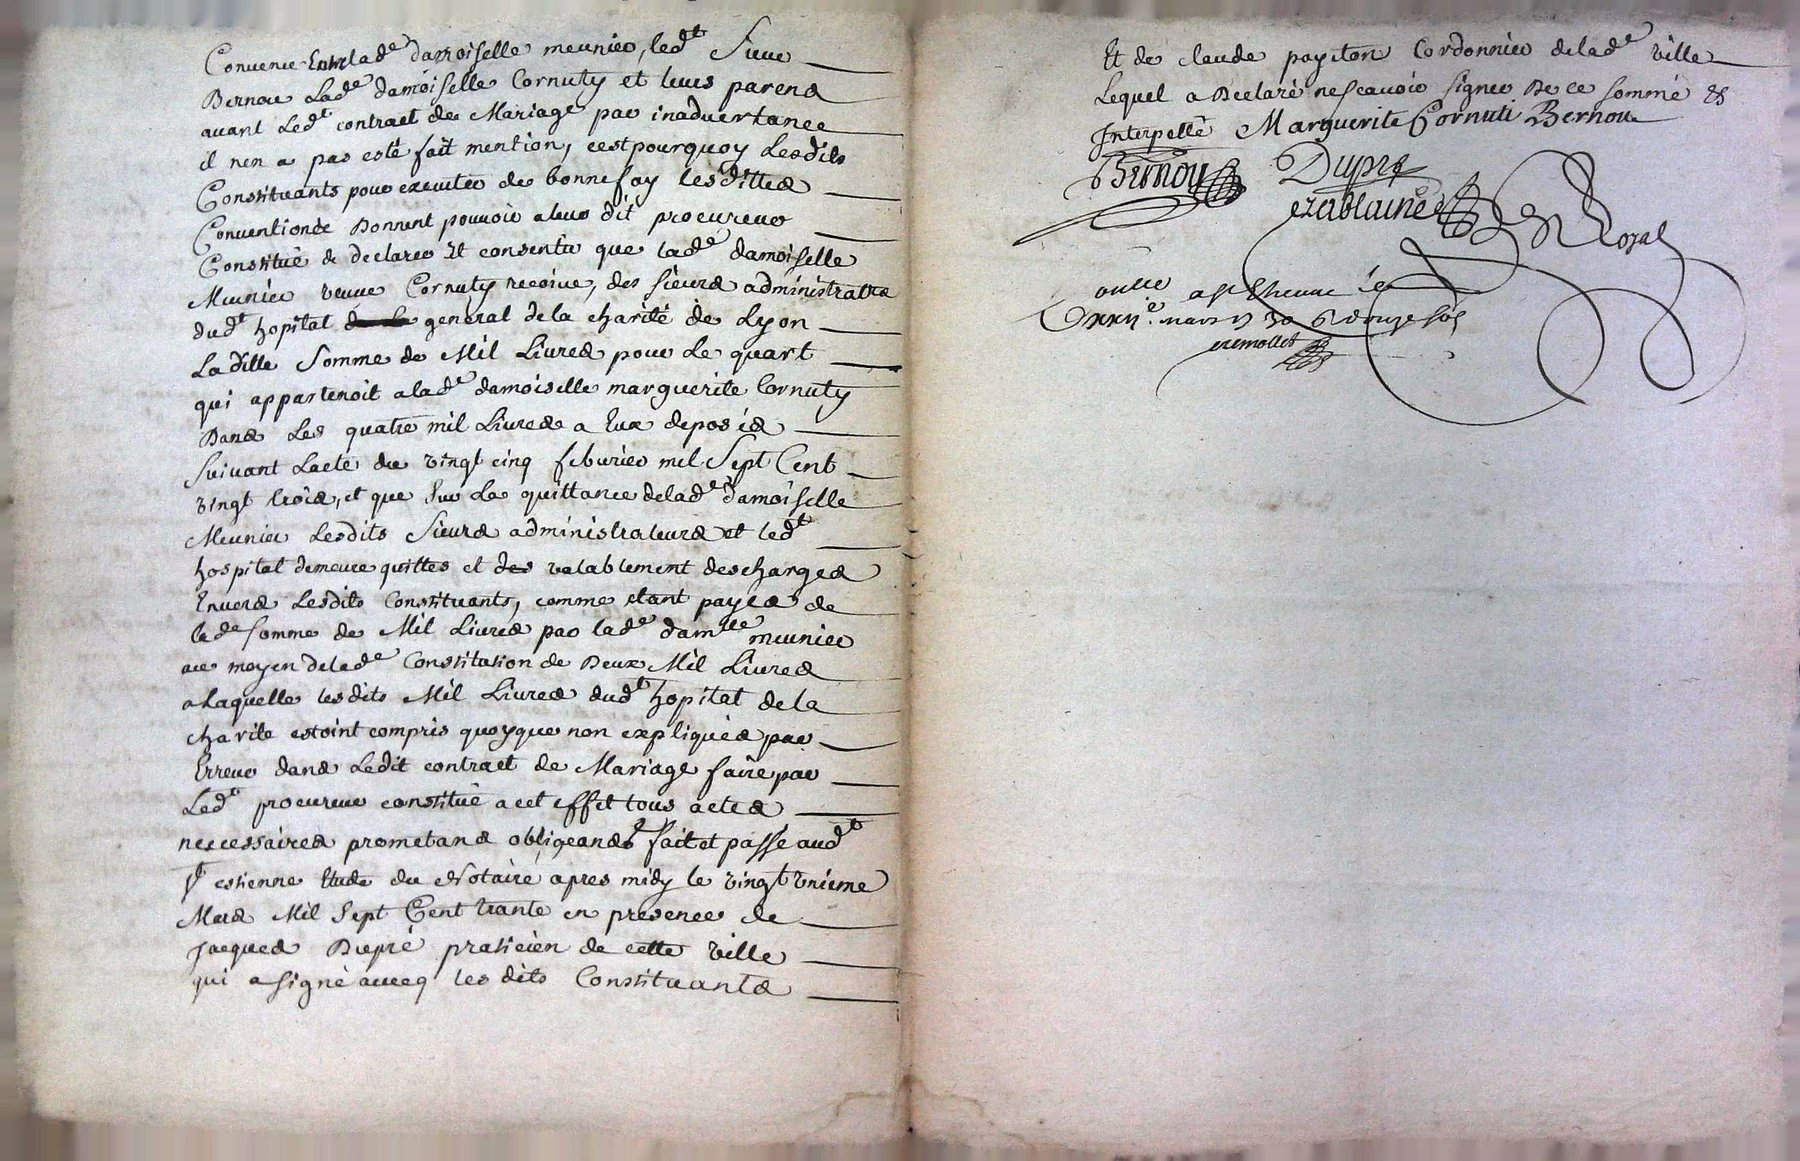 Convenu Entre lad.e damoiselle meunier, led.t Sieur
Bernou Lad.e damoiselle Cornuty et leurs parens
avant Led.t contract de Mariage par inadvertance
il nen a pas esté fait mention, cest pourquoy Lesdits
Constituants pour executer de bonne foy lesdittes
Conventions Donnent pouvoir a leur dit procureur
Constitué de declarer Et consentir que lad.e damoiselle
Meunier veuve Cornuty recoive, des sieurs administratrs
dud.t hopital general de la charité de Lyon
Laditte Somme de Mil Livres pour Le quart
qui appartenoit a lad.e damoiselle marguerite Cornuty
Dans Les quatre mil Livres a Eux deposés
Suivant Lacte du vingt cinq febvrier mil Sept Cent
vingt trois, et que Sur La quittance de lad.e damoiselle
Meunier Lesdits Sieurs administrateurs et led.t
hospital demeure quittes et des valablement descharges
Envers Lesdits Constituants, comme etant payés de
lad.e Somme de Mil Livres par lad.e dam.lle meunier
au moyen de lad.e Constitution de Deux Mil Livres
a Laquelle lesdits Mil Livres dud.t hopital de la
charite estoint compris quoyque non expliqués par
Erreur dans Ledit contract de Mariage faire par
Led.t procureur constitué a cet effet tous actes
necessaires prometans obligeans fait et passé aud.t
S.t estienne Etude du Notaire apres midy le vingt unieme
Mars Mil Sept Cent trante en presence de
Jacques Dupré praticien de cette ville
qui a signé avecq les dits Constituants
Et de claude payston Cordonnier de lad.e ville
Lequel a Declaré ne scavoir signer De ce sommé &
Interpellé Marguerite Cornuti Bernou
Bernou Dupré
Royal
a St Etienne le
xxii.e mars 1730 douze sols